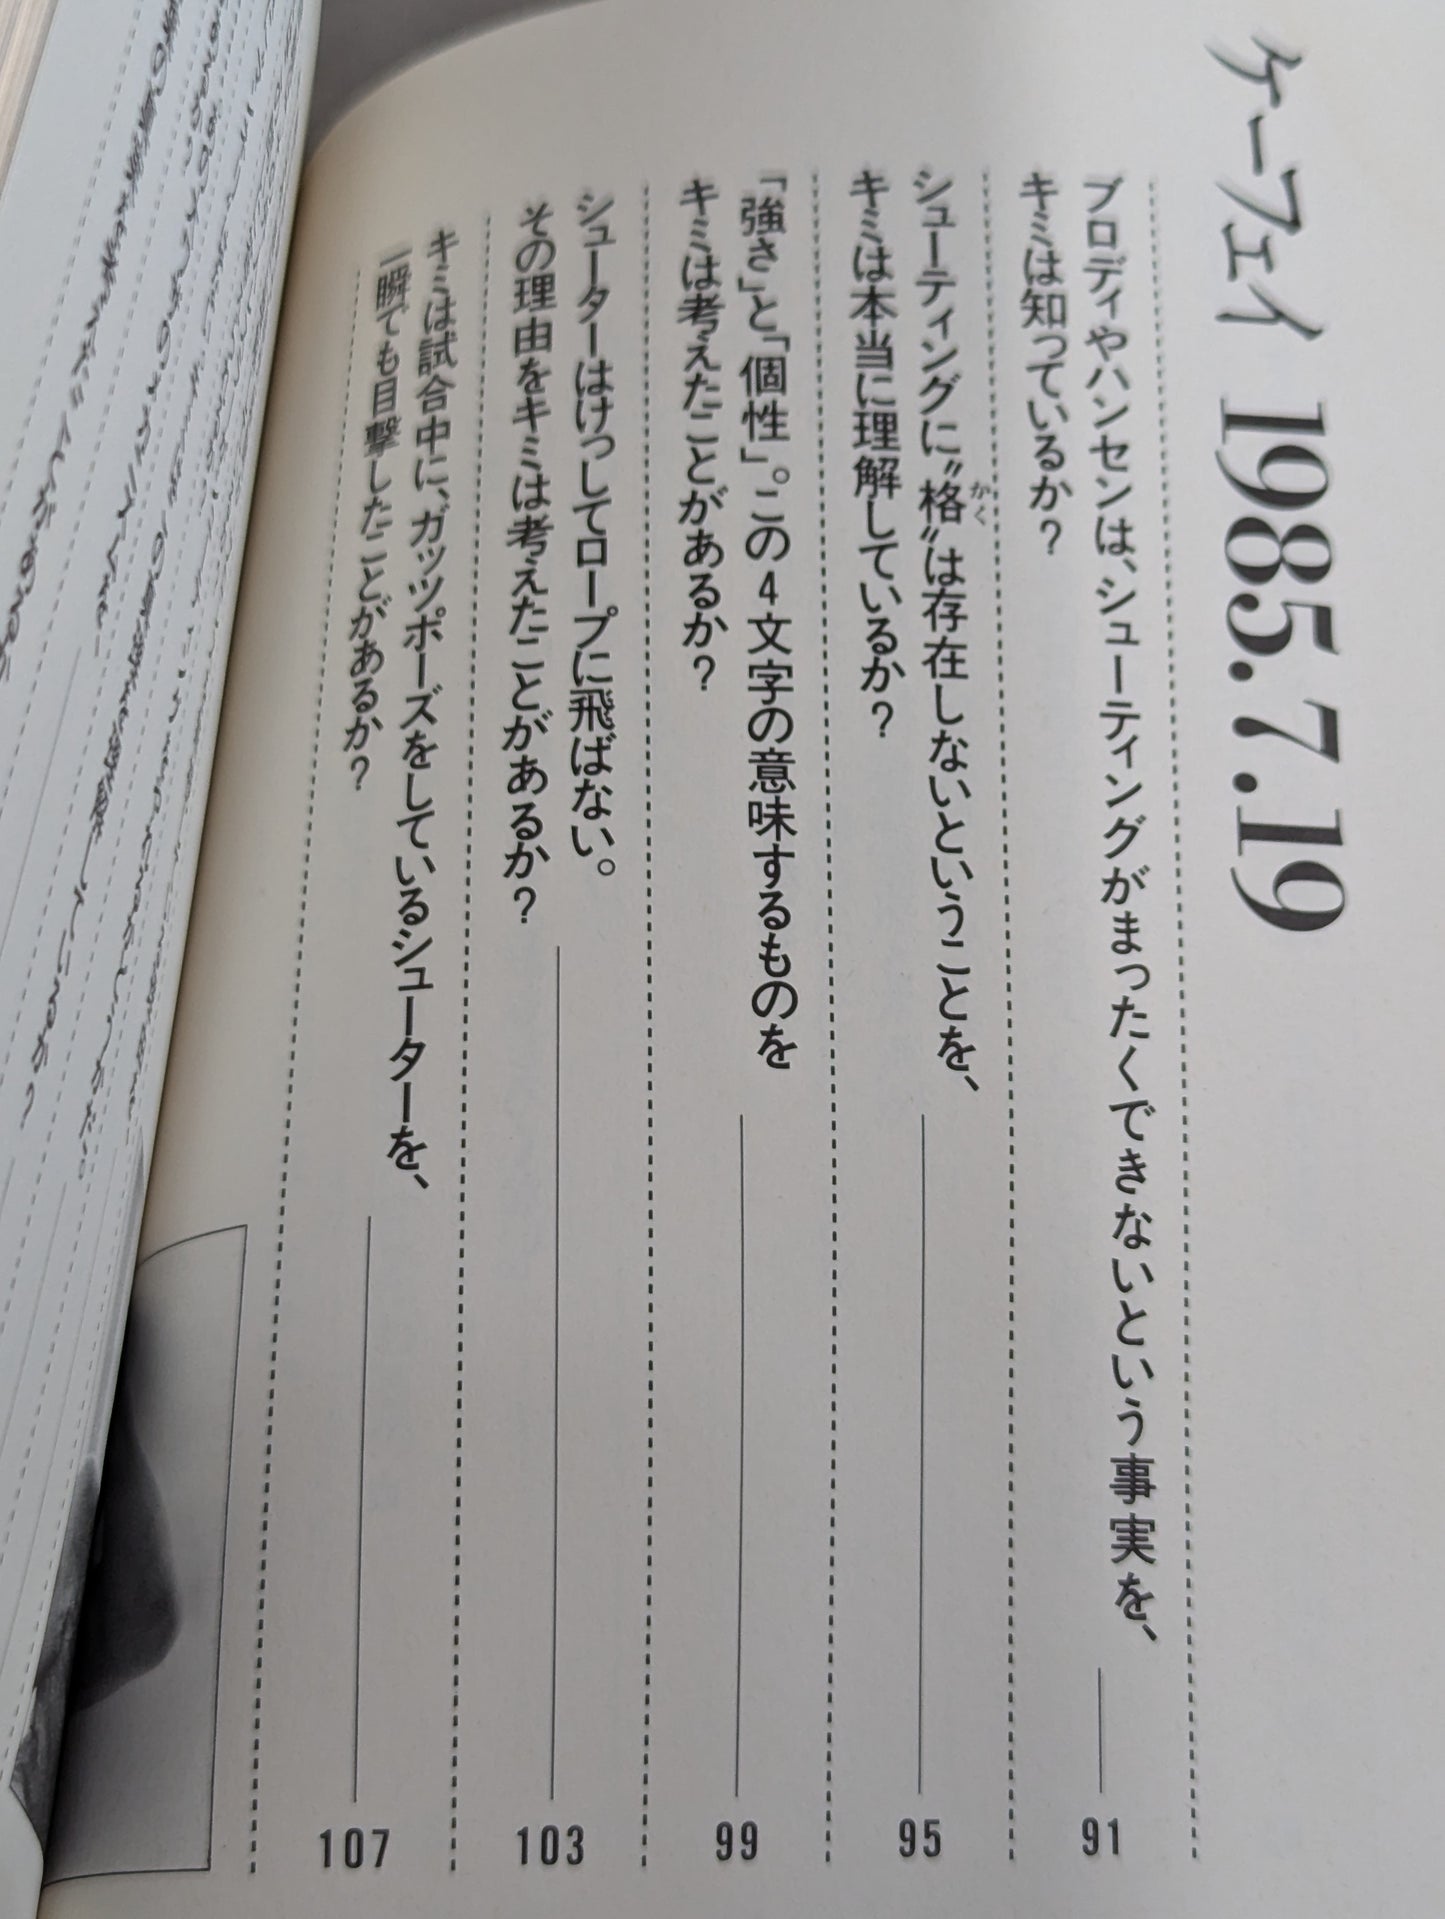 ケーフェイ 1985.7.19
ブロディやハンセンは、シューティングがまったくできないという事実を、
キミは知っているか? 91
シューティングに〝格〟は存在しないということを、
かく
キミは本当に理解しているか? 95
「強さ」と「個性」。この4文字の意味するものを
キミは考えたことがあるか? 99
シューターはけっしてロープに飛ばない。
その理由をキミは考えたことがあるか? 103
キミは試合中に、ガッツポーズをしているシューターを、
一瞬でも目撃したことがあるか? 107